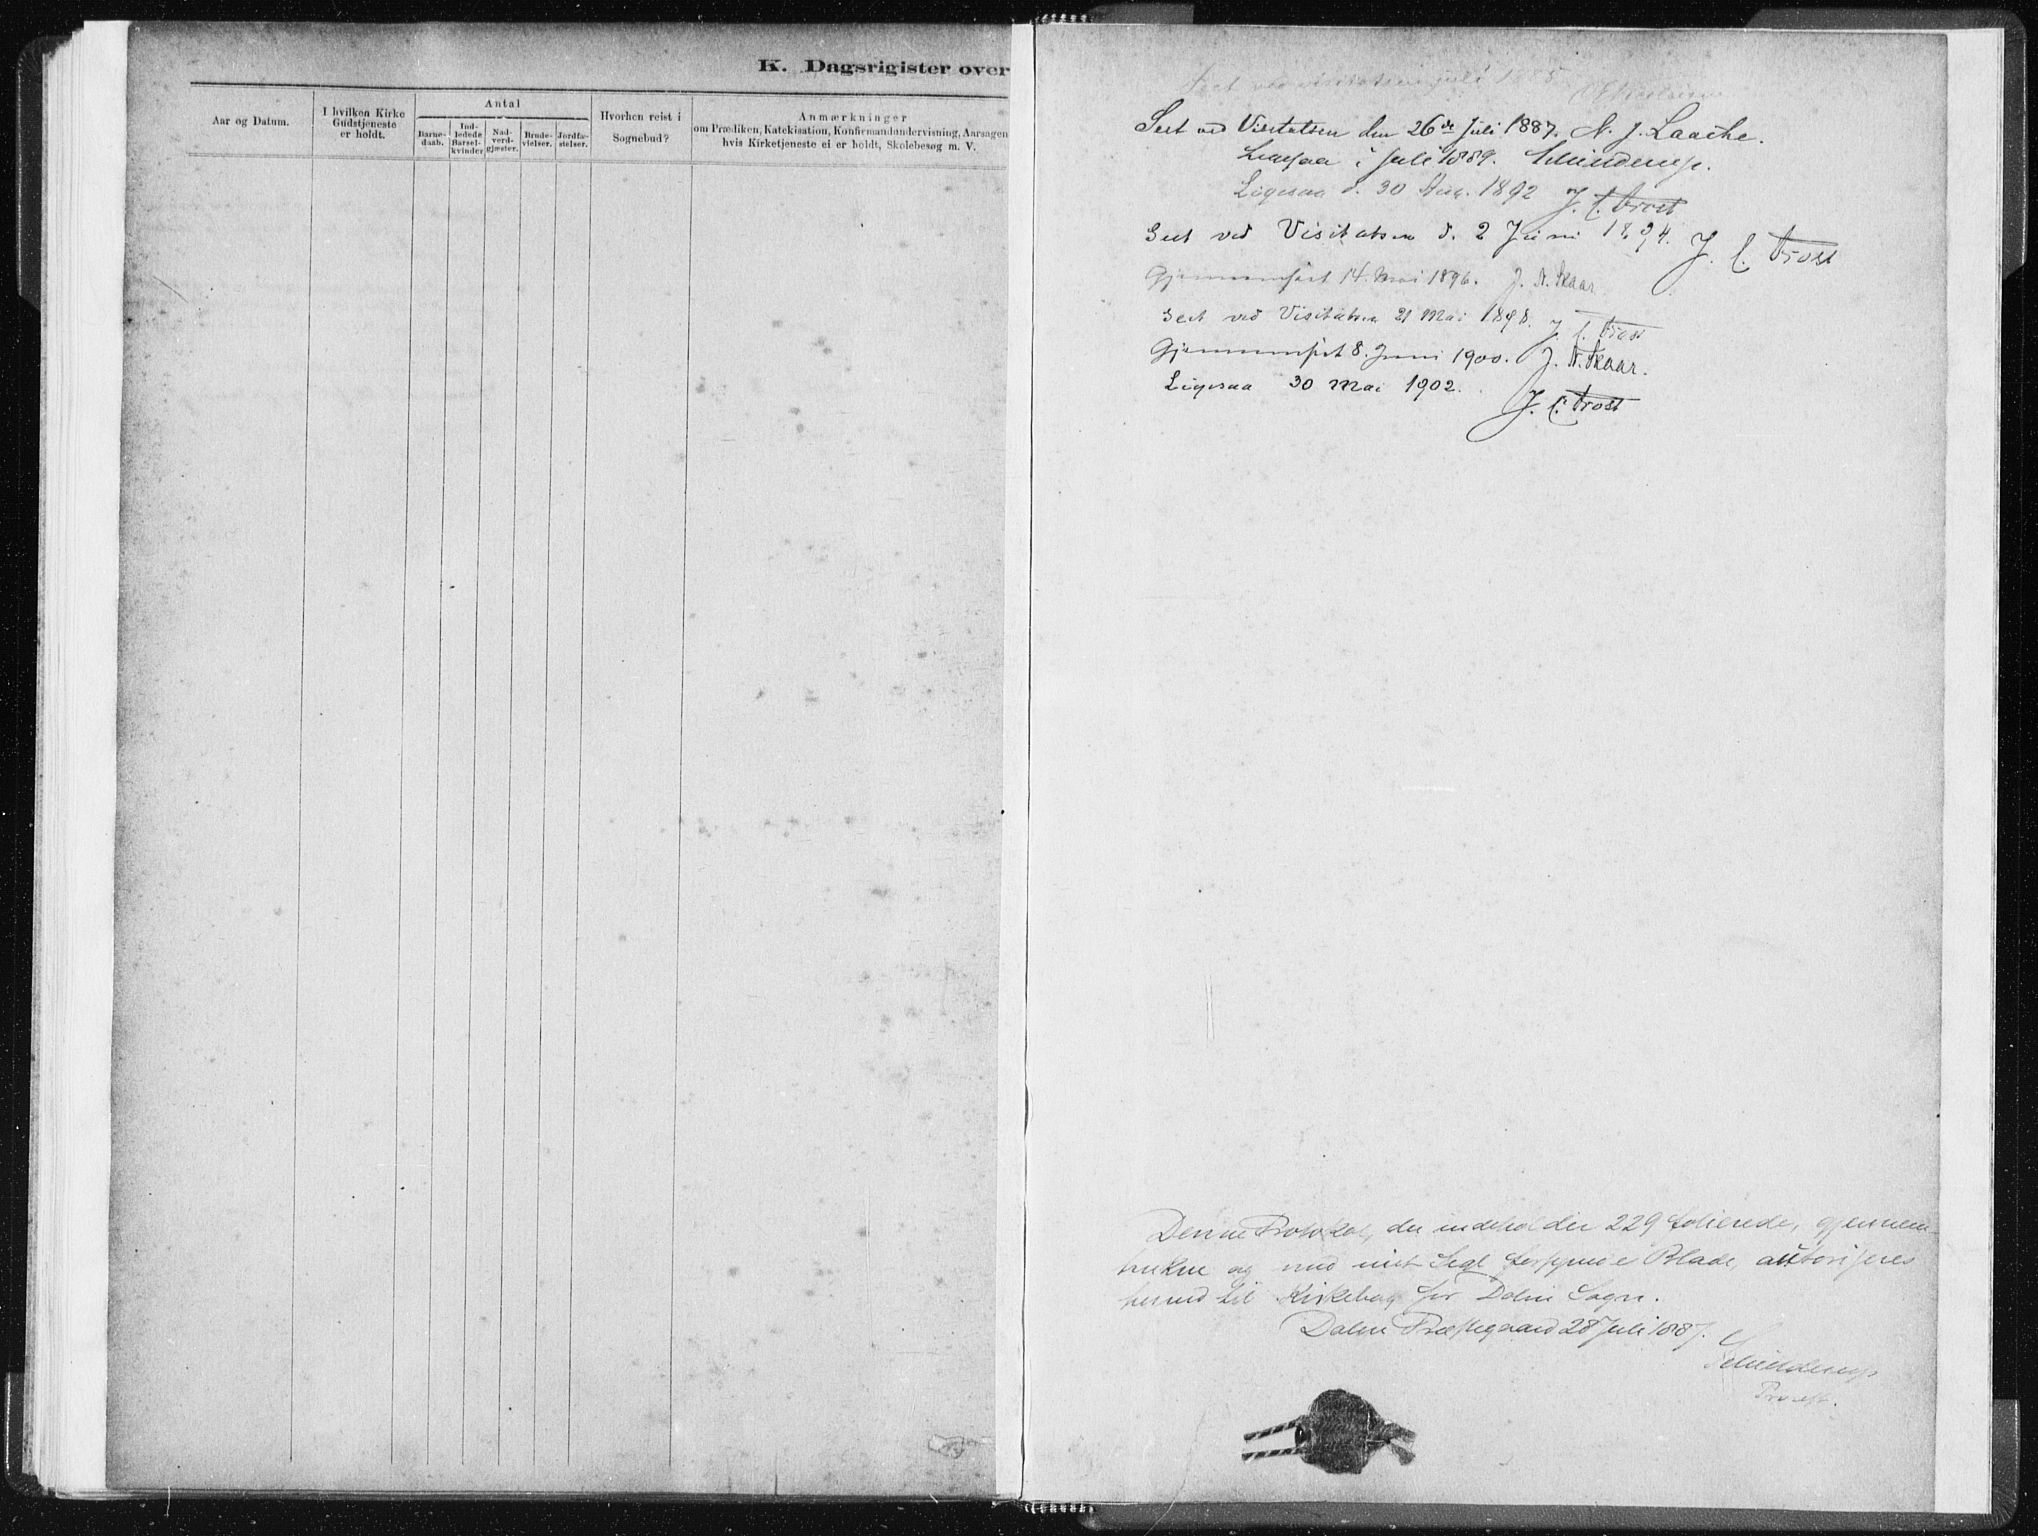 K. Dagsrigister over
Aar og Datum.
I hvilken Kirke
Gudstjeneste
er holdt.
Antal
Barne-
daab.
Ind-
ledede
Barsel-
kvinder
Nad-
verd-
gjæster.
Brude-
vielser.
Jordfæ-
stelser.
Hvorhen reist i
Sognebud?
Anmærkninger
om Prædiken, Katekisation, Konfirmandundervisning, Aarsagen
hvis Kirketjeneste ei er holdt, Skolebesøg m. V.
Seet ved Visitatsen juli 1885
Seet ved Visitatsen den 26de Juli 1887. N. J. Laache.
Ligesaa i Juli 1889. Schinderup.
Ligesaa d. 30 1892 J. C. Trost
Seet ved Visitatsen d. 2 Juni 1894. J. C. Trost
Gjennemseet 14. Mai 1896. J. N. Skaar
Seet ved Visitatsen 21 Mai 1898. J. C. Trost
Gjennemseet 8. Juni 1900. J. N. Skaar.
Ligesaa 30 Mai 1902. J. C. Trost
Denne Protokol, der indeholder 229 folierede, gjennem-
trukne og med mit Segl forsynede Blade, autoriseres
herved til Kirkebog for Dolm Sogn.
Dolm Præstegaard 28 Juli 1887.
Schinderup
Provst.